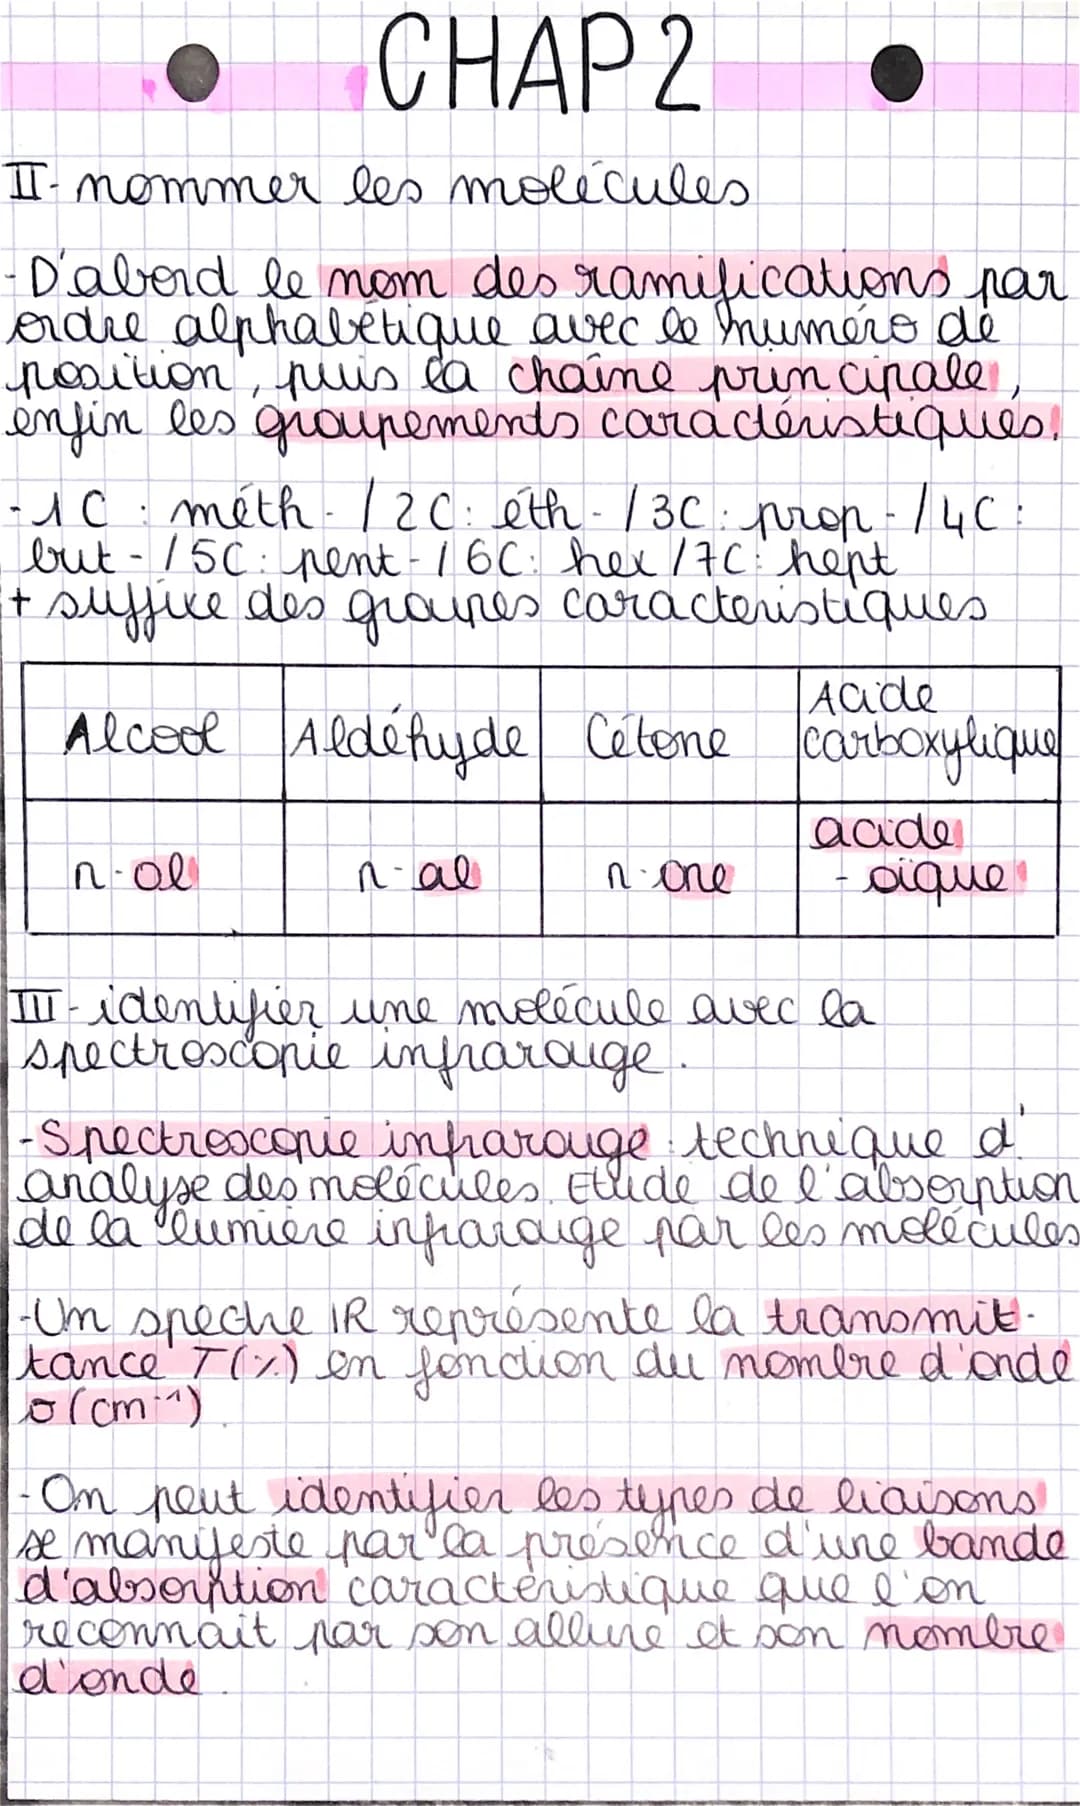 CHAP 2
II- nommer les molécules
- D'abord le nom des ramifications par
ordre alphabétique avec le numéro de
position, puis la chaîne principale,
enfin les groupements caractéristiques.
- 1C : méth- / 2C : éth- / 3C : prop- / 4C :
but- / 5C : pent- / 6C : hex / 7C : hept
+ suffixe des groupes caractéristiques
Alcool Aldéhyde Cétone Acide carboxylique
n-ol n-al n-one acide -oïque
III- identifier une molécule avec la
spectroscopie infrarouge.
- Spectroscopie infrarouge : technique d'
analyse des molécules. Etude de l'absorption
de la lumière infrarouge par les molécules
- Un spectre IR représente la transmit-
tance T(%) en fonction du nombre d'onde
σ(cm⁻¹).
- On peut identifier les types de liaisons
se manifeste par la présence d'une bande
d'absorption caractéristique que l'on
reconnait par son allure et son nombre
d'onde.